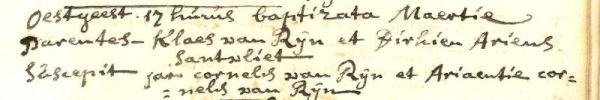 Oestgeest. 17 huius baptizata Maertie
Parentes - Klaes van Rÿn et Dirkien Ariens
Santvliet
Suscepit jan cornelis van Rÿn et Ariaentie cor=
= nelis van Rÿn